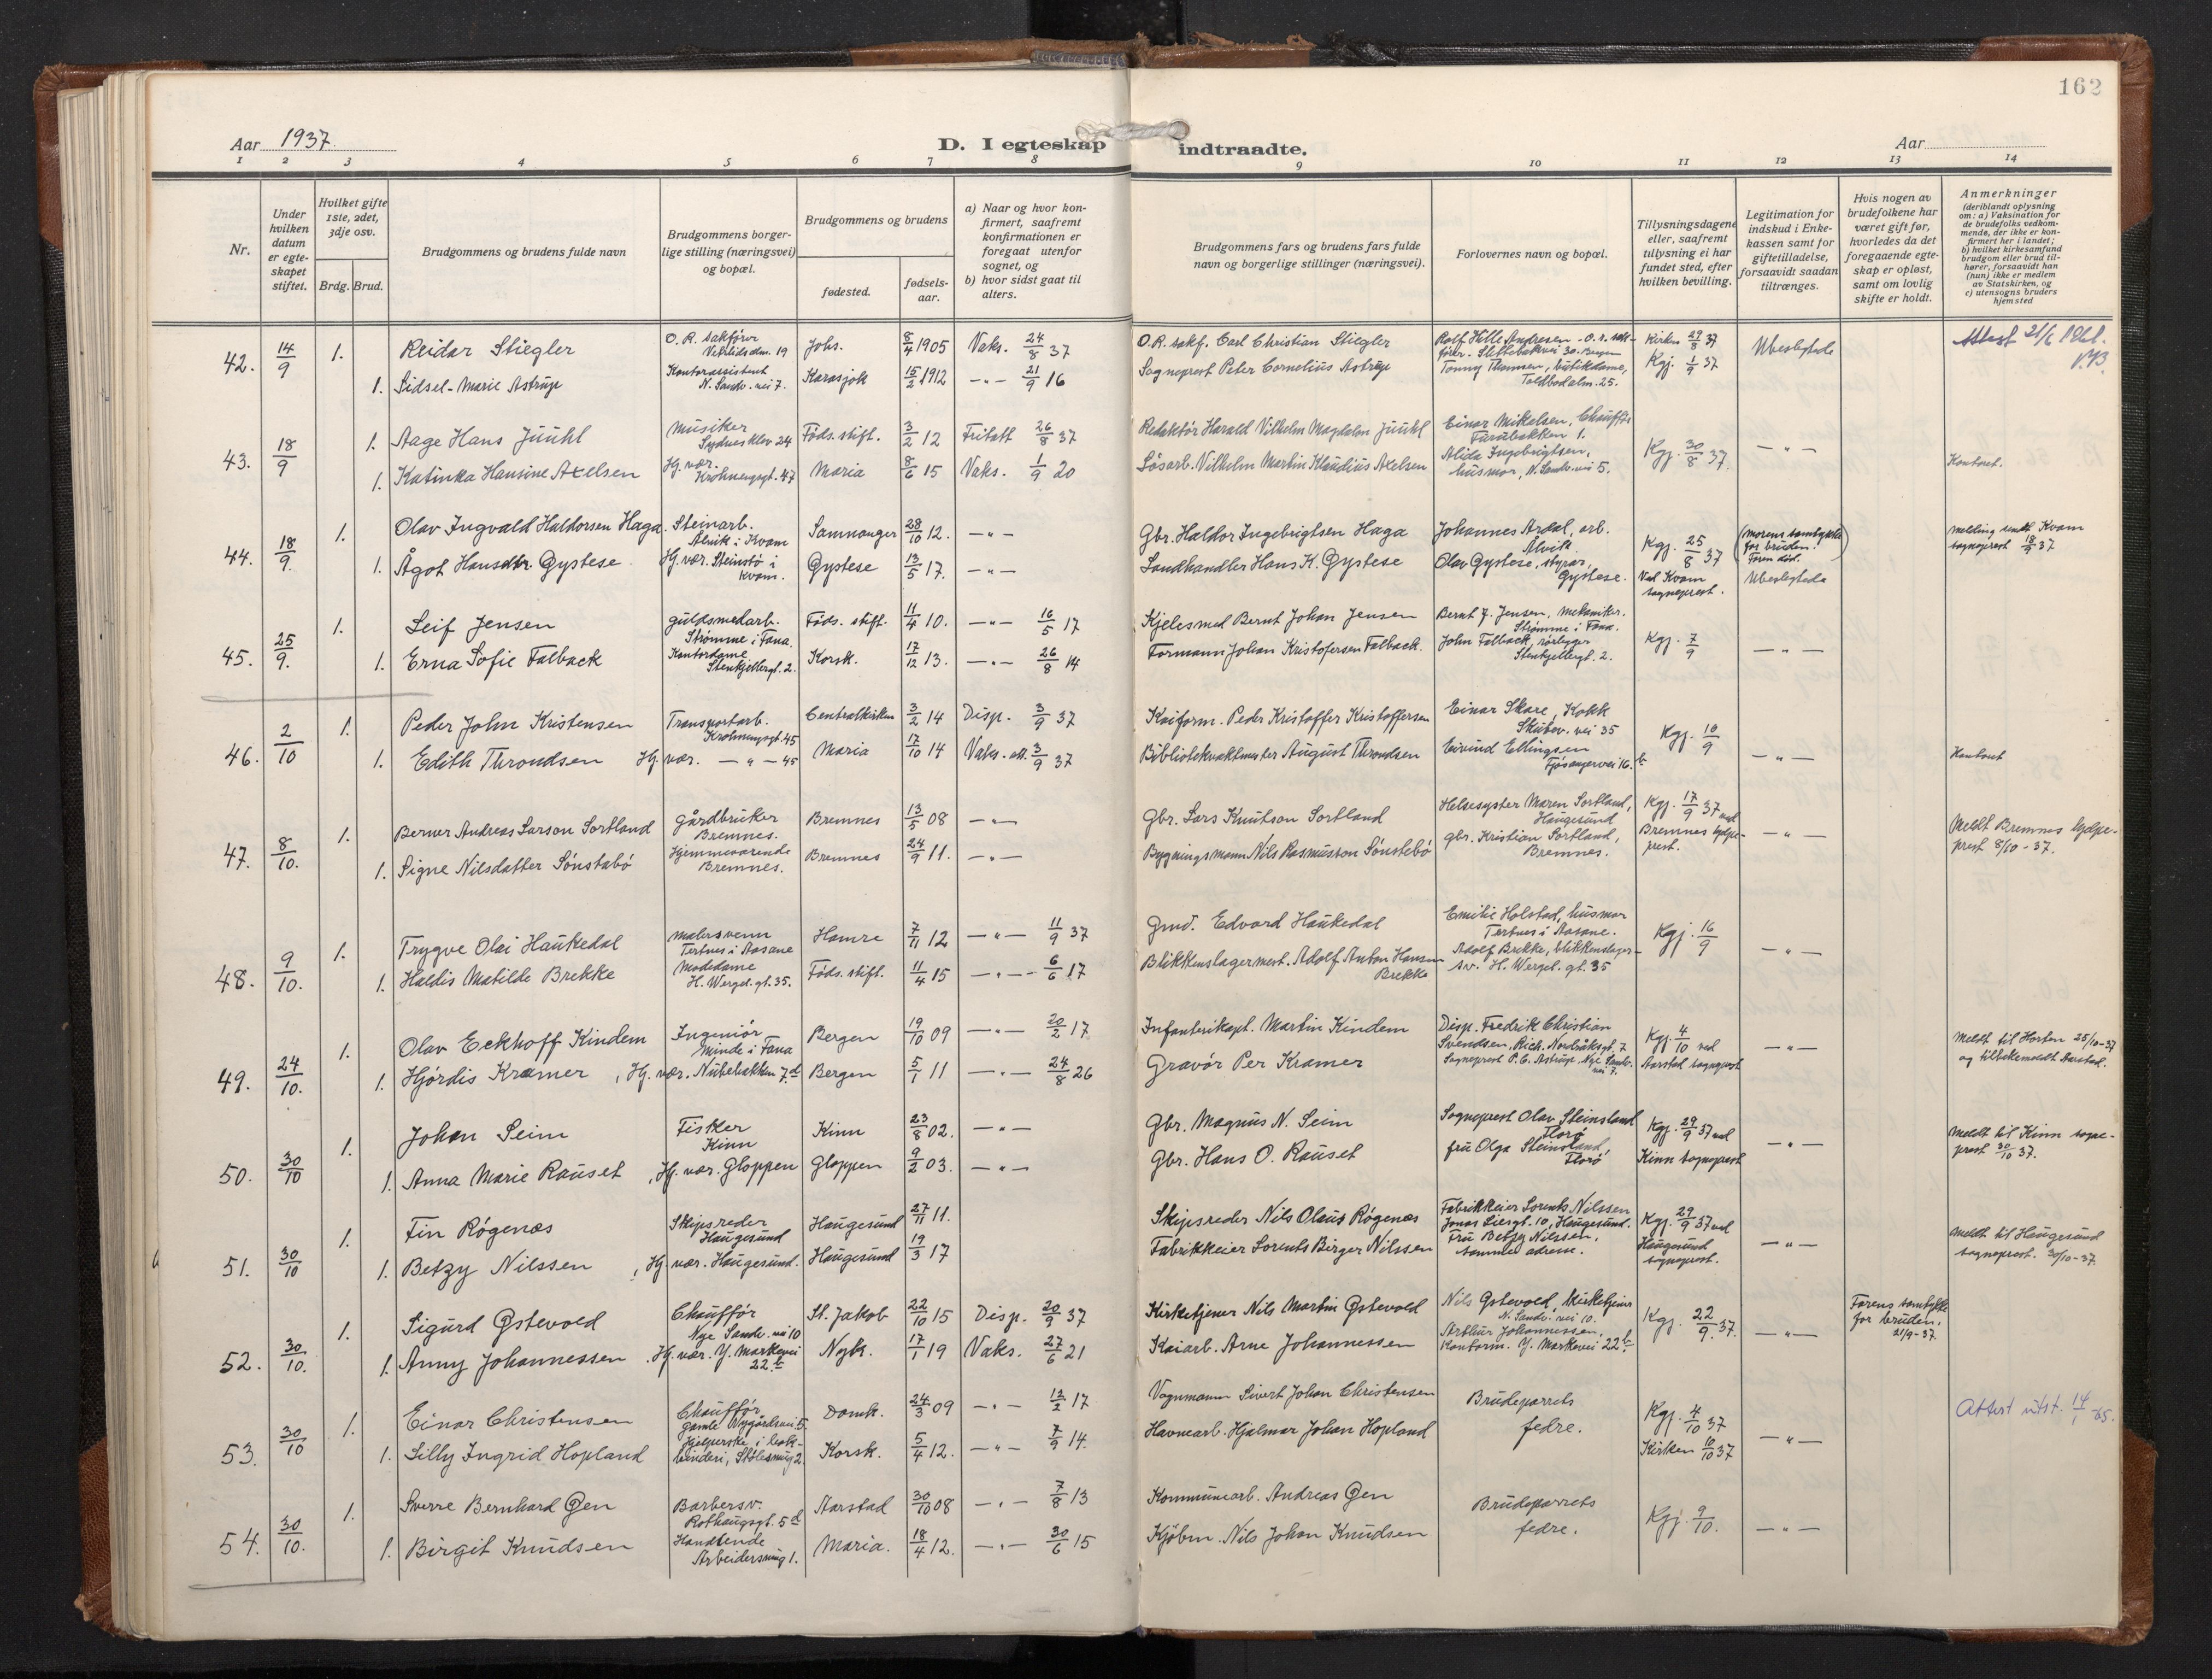 162
Aar 1937.
D. I egteskap indtraadte.
Aar
1 2 3 4 5 6 7 8 9 10 11 12 13 14
Nr.
Under hvilken datum er egteskapet stiftet.
Hvilket gifte 1ste, 2det, 3dje osv.
Brdg. Brud.
Brudgommens og brudens fulde navn
Brudgommens borgerlige stilling (næringsvei) og bopæl.
Brudgommens og brudens
fødested.
fødselsaar.
a) Naar og hvor konfirmert, saafremt konfirmationen er foregaat utenfor sognet, og
b) hvor sidst gaat til alters.
Brudgommens fars og brudens fars fulde navn og borgerlige stillinger (næringsvei).
Forlovernes navn og bopæl.
Tillysningsdagene eller, saafremt tillysning ei har fundet sted, efter hvilken bevilling.
Legitimation for indskud i Enkekassen samt for giftetilladelse, forsaavidt saadan tiltrænges.
Hvis nogen av brudefolkene har været gift før, hvorledes da det foregaaende egteskap er opløst, samt om lovlig skifte er holdt.
Anmerkninger
(deriblandt oplysning om: a) Vaksination for de brudefolks vedkommende, der ikke er konfirmert her i landet; b) hvilket kirkesamfund brudgom eller brud tilhører, forsaavidt han (hun) ikke er medlem av Statskirken, og c) utensogns bruders hjemsted
42. 14/9 1. Reidar Stiegler O. R. sakfører Vetrlidsalm. 19 Johs. 8/4 1905 Vaks. 24/8 37 O.R. sakf. Carl Christian Stiegler Rolf Hille Andresen - O. r. sakfører. 30. Bergen Kirken 29/8 37 Ubeslegtede Attest 21/6 1961.
1. Sidsel-Marie Astrup Kontorassistent N. Sandv. vei 7. Karasjok 15/2 1912 -"- 21/9 16 Sogneprest Peter Cornelius Astrup Tonny Thomsen, butikdame, Toldbodalm. 25. Kgj. 1/9 37
43. 18/9 1. Aage Hans Juuhl Musiker Sydnesklev 24 Føds. stift. 3/2 12 Fritatt 26/8 37 Redaktør Harald Vilhelm Magdalon Juuhl Einar Mikalsen, Chauffør Furubakken 1. Kgj. 30/8 37. -"-
1. Katinka Hansine Axelsen Hj. vær. Krohnengsgt. 47 Maria 8/6 15 Vaks. 1/9 20 Løsarb. Vilhelm Martin Klaudius Axelsen Alida Ingebrigtsen, husmor, N. Sandv. vei 5. Kontoret.
44. 18/9. 1. Olav Ingvald Haldorsen Haga. Steinarb. Ålvik i Kvam Samnanger 28/10 12. -"- Gbr. Haldor Ingebrigtsen Haga Johannes Ardal, arb. Ålvik. Kgj. 25/8 37 (morens samtykke for bruden. Faren død.) Melding sendt Kvam sogneprest 18/9 37
1. Ågot Hansdtr. Gystese Hj. vær. Steinstø i Kvam. Gystese 13/5 17. -"- Landhandler Hans K. Gystese Olav Gystese, styrar, Gystese. Ved Kvam sogneprest. Ubeslegtede
45. 25/9. 1. Leif Jensen guldsmedarb. Strømme i Fana. Føds. stift. 11/4 10. -"- 16/5 17 Kjelesmed Bernt Johan Jensen Bernt J. Jensen, mekaniker. Strømme i Fana. Kgj. 7/9 -"-
1. Erna Sofie Falback Kontordame Stenkjellergt. 2. Korsk. 17/12 13. -"- 26/8 14 Formann Johan Kristofersen Falback. John Falback, rørlegger Stenkjellergt. 2.
46. 2/10 1. Peder John Kristensen Transportarb. Krohnengsgt. 45 Centralkirken 3/2 14 Disp. 3/9 37 Kaiform. Peder Kristoffer Kristoffersen Einar Skare, Kokk Skutev. vei 35 Kgj. 10/9 -"-
1. Edith Throndsen Hj. vær. -"- 45 Maria 17/10 14 Vaks. att. 3/9 37 Bibliotekvaktmester August Throndsen Eivind Ellingsen Fjøsangervei 16. b Kontoret
47. 8/10. 1. Berner Andreas Larson Sortland gårdbruker Bremnes. Bremnes 13/5 08 -"- Gbr. Lars Knutson Sortland Helsesyster Maren Sortland, Haugesund Kgj. 17/9 37 ved Bremnes hjelpeprest. -"- Meldt Bremnes hjelpeprest 8/10-37.
1. Signe Nilsdatter Sønstabø Hjemmeværende Bremnes. Bremnes 24/9 11. -"- Bygningsmann Nils Rasmusson Sønstebø gbr. Kristian Sortland, Bremnes.
48. 9/10. 1. Trygve Olai Haukedal malersvenn Tertnes i Aasane Hamre 7/11 12 -"- 11/9 37 Gmd. Edvard Haukedal Emilie Holstad, husmor Tertnes i Aasane. Kgj. 16/9 -"-
1. Haldis Matilde Brekke Modedame H. Wergel. gt. 35. Føds. stift. 11/4 15 -"- 6/6 17 Blikkenslagermest. Adolf Anton Hansen Brekke Adolf Brekke, blikkenslagersv. H. Wergel. gt. 35
49. 24/10. 1. Olav Eckhoff Kindem Ingeniør Minde i Fana Bergen 19/10 09 -"- 20/2 17 Infanterikapt. Martin Kindem Disp. Fredrik Christian Svendsen, Rich. Nordråksgt. 7 Kgj. 4/10 ved Aarstad sogneprest -"- Meldt til Horten 25/10-37 og tilbakemeldt Aarstad.
1. Hjørdis Kramer, Hj. vær. Nubebakken 7.d Bergen 5/1 11 -"- 24/8 26 Gravør Per Kramer Sogneprest P. C. Astrup Nye Sandv. vei 7.
50. 30/10 1. Johan Seim Fisker Kinn Kinn 23/8 02. -"- Gbr. Magnus N. Seim Sogneprest Olav Steinsland Florø Kgj. 29/9 37 ved Kinn sogneprest -"- Meldt til Kinn sogneprest 30/10 37.
1. Anna Marie Rauset, Hj. vær. Gloppen Gloppen 9/2 03. -"- Gbr. Hans O. Rauset fru Olga Steinsland, Florø
51. 30/10 1. Fin Røgenæs Skipsreder Haugesund Haugesund 27/11 11. Skipsreder Nils Olaus Røgenæs Fabrikkeier Lorents Nilssen Jonas Liesgt. 10, Haugesund. Kgj. 29/9 37 ved Haugesund sogneprest. -"- Meldt til Haugesund sogneprest. 30/10-37.
1. Betzy Nilssen, Hj. vær. Haugesund. Haugesund 19/3 17 Fabrikkeier Lorents Birger Nilssen Fru Betzy Nilssen, samme adresse.
52. 30/10. 1. Sigurd Østevold Chauffør Nye Sandv. vei 10 St. Jakob 22/10 15 Disp. 20/9 37 Kirketjener Nils Martin Østevold Nils Østevold, kirketjener N. Sandv. vei 10. Kgj. 22/9 37. -"- Farens samtykke for bruden. 21/9-37.
1. Anny Johannessen, Hj. vær. Y. Markevei 22b Nyk. 17/1 19 Vaks. 27/6 21 Kaiarb. Arne Johannessen Arthur Johannessen, Kontorm. Y. Markevei 22b.
53. 30/10 1. Einar Christensen Chauffør Gamle Nygårdsvei 5. Domk. 24/3 09 -"- 12/2 17 Vognmann Sivert Johan Christensen Brudeparrets fedre. Kgj. 4/10 37 Kirken 10/10 37 -"- Attest utst. 14/1-65.
1. Lilly Ingrid Hopland Hjelperske i bokbinderi, Stølesmug 2. Korsk. 5/4 12. -"- 7/9 14. Havnearb. Hjalmar Johan Hopland
54. 30/10. 1. Sverre Bernhard Øen Barbersv. Rothaugsgt. 5d Aarstad 30/10 08 -"- 7/8 13 Kommunearb. Andreas Øen Brudeparrets fedre. Kgj. 9/10. -"-
1. Birgit Knudsen Handlende Arbeidersmug 1. Maria. 18/4 12. -"- 30/6 15 Kjøbm. Nils Johan Knudsen